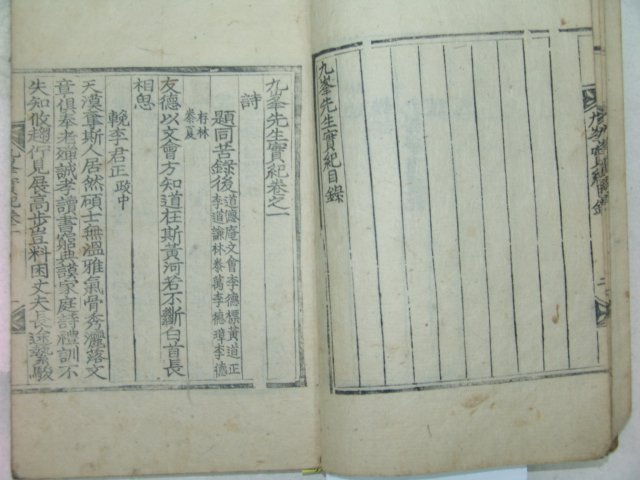 九峯先生實紀目錄
九峯先生實紀卷之一
詩
題同苦錄後 道憫庵文會李德標黃道正
李道謙林泰萬李德璋李德
秦夏 林
友德以文會方知道在斯黃河若不斷白首長
相思
輓李君正 政中
天漠韋斯人居然碩士無溫雅氣骨秀灑落文
章俱奉老殫誠孝讀書窮典謨家庭詩禮訓不
失知攸趨佇見展高步豈料困丈夫長途